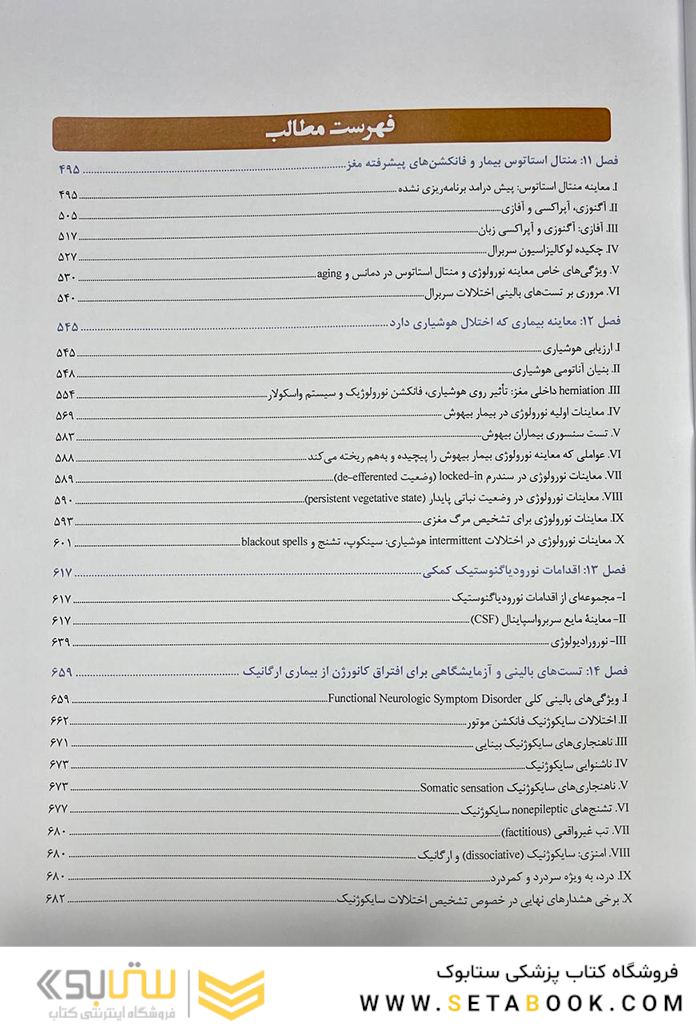 فهرست مطالب
فصل ۱۱: منتال استاتوس بیمار و فانکشن‌های پیشرفته مغز ۴۹۵
I. معاینه منتال استاتوس: پیش درامد برنامه‌ریزی نشده ۴۹۵
II. آگنوزی، آپراکسی و آفازی ۵۰۵
III. آفازی: آگنوزی و آپراکسی زبان ۵۱۷
IV. چکیده لوکالیزاسیون سربرال ۵۲۷
V. ویژگی‌های خاص معاینه نورولوژی و منتال استاتوس در دمانس و aging ۵۳۰
VI. مروری بر تست‌های بالینی اختلالات سربرال ۵۴۰
فصل ۱۲: معاینه بیماری که اختلال هوشیاری دارد ۵۴۵
I. ارزیابی هوشیاری ۵۴۵
II. بنیان آناتومی هوشیاری ۵۴۸
III. herniation داخلی مغز: تأثیر روی هوشیاری، فانکشن نورولوژیک و سیستم واسکولار ۵۵۴
IV. معاینات اولیه نورولوژی در بیمار بیهوش ۵۶۹
V. تست سنسوری بیماران بیهوش ۵۸۳
VI. عواملی که معاینه نورولوژی بیمار بیهوش را پیچیده و به‌هم ریخته می‌کند ۵۸۸
VII. معاینات نورولوژی در سندرم locked-in (وضعیت de-efferented) ۵۸۹
VIII. معاینات نورولوژی در وضعیت نباتی پایدار (persistent vegetative state) ۵۹۰
IX. معاینات نورولوژی برای تشخیص مرگ مغزی ۵۹۳
X. معاینات نورولوژی در اختلالات intermittent هوشیاری: سینکوپ، تشنج و blackout spells ۶۰۱
فصل ۱۳: اقدامات نورودیاگنوستیک کمکی ۶۱۷
I- مجموعه‌ای از اقدامات نورودیاگنوستیک ۶۱۷
II- معاینهٔ مایع سربرواسپاینال (CSF) ۶۱۷
III- نورورادیولوژی ۶۳۹
فصل ۱۴: تست‌های بالینی و آزمایشگاهی برای افتراق کانورژن از بیماری ارگانیک ۶۵۹
I. ویژگی‌های بالینی کلی Functional Neurologic Symptom Disorder ۶۵۹
II. اختلالات سایکوژنیک فانکشن موتور ۶۶۲
III. ناهنجاری‌های سایکوژنیک بینایی ۶۷۱
IV. ناشنوایی سایکوژنیک ۶۷۳
V. ناهنجاری‌های سایکوژنیک Somatic sensation ۶۷۳
VI. تشنج‌های nonepileptic سایکوژنیک ۶۷۷
VII. تب غیرواقعی (factitious) ۶۸۰
VIII. آمنزی: سایکوژنیک (dissociative) و ارگانیک ۶۸۰
IX. درد، به ویژه سردرد و کمردرد ۶۸۰
X. برخی هشدارهای نهایی در خصوص تشخیص اختلالات سایکوژنیک ۶۸۲
فروشگاه کتاب پزشکی ستابوک
WWW.SETABOOK.COM
ستابوک
فروشگاه اینترنتی کتاب